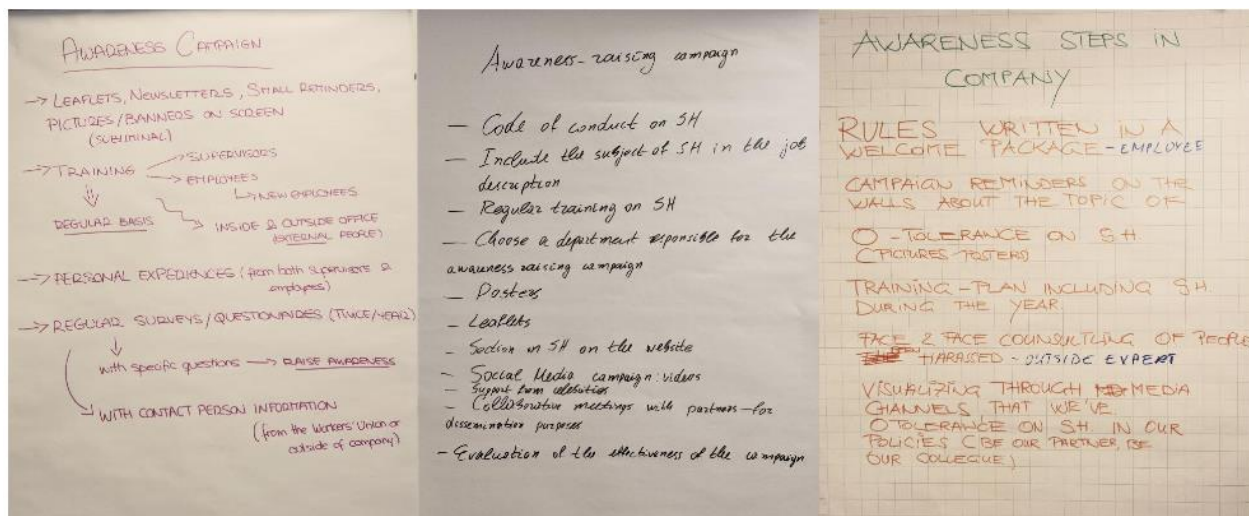 AWARENESS CAMPAIGN
→ LEAFLETS, NEWSLETTERS, SMALL REMINDERS,
PICTURES/BANNERS ON SCREEN
(SUBLIMINAL)
→ TRAINING → SUPERVISORS
→ EMPLOYEES
→ NEW EMPLOYEES
REGULAR BASIS
INSIDE & OUTSIDE OFFICE
(EXTERNAL PEOPLE)
→ PERSONAL EXPERIENCES (from both supervisors &
employees)
→ REGULAR SURVEYS/QUESTIONAIRES (TWICE/YEAR)
with specific questions → RAISE AWARENESS
WITH CONTACT PERSON INFORMATION
(from the Workers' Union or
outside of company)
Awareness-raising campaign
— Code of conduct on SH
— Include the subject of SH in the job
description
— Regular training on SH
— Choose a department responsible for the
awareness raising campaign
— Posters
— Leaflets
— Section on SH on the website
— Social Media campaign: videos
— Support from celebrities
— Collaborative meetings with partners - for
dissemination purposes
— Evaluation of the effectiveness of the campaign
AWARENESS STEPS IN
COMPANY
RULES WRITTEN IN A
WELCOME PACKAGE - EMPLOYEE
CAMPAIGN REMINDERS ON THE
WALLS ABOUT THE TOPIC OF
O - TOLERANCE ON S.H.
(PICTURES-POSTERS)
TRAINING - PLAN INCLUDING S.H.
DURING THE YEAR.
FACE 2 FACE COUNSULTING OF PEOPLE
HARASSED - OUTSIDE EXPERT
VISUALIZING THROUGH MEDIA
CHANNELS THAT WE'VE
O TOLERANCE ON S.H. IN OUR
POLICIES (BE OUR PARTNER, BE
OUR COLLEGUE)